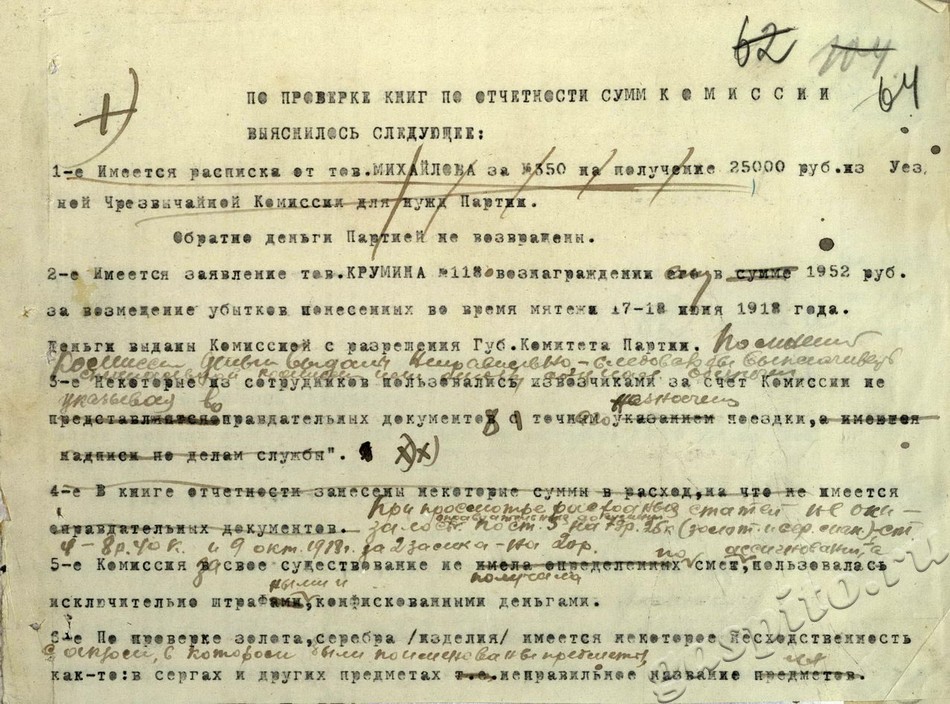 62 104
64
1)
ПО ПРОВЕРКЕ КНИГ ПО ОТЧЕТНОСТИ СУММ К О М И С С И И
ВЫЯСНИЛОСЬ СЛЕДУЮЩЕЕ:
1-е Имеется расписка от тов.МИХАЙЛОВА за №350 на получение 25000 руб.из Уез
ной Чрезвычайной Комиссии для нужд Партии.
Обратно деньги Партией не возвращены.
2-е Имеется заявление тов.КРУМИНА №118 о вознаграждении ему в сумме 1952 руб.
за возмещение убытков понесенных во время мятежа 17-18 июня 1918 года.
Деньги выданы Комиссией с разрешения Губ.Комитета Партии.
деньги выданы неправильно - следовало бы выплачивать
3-е Некоторые из сотрудников пользовались извозчиками за счет Комиссии не
указывая в
представляя оправдательных документов с точным указанием поездки,а имеются
надписи по делам службы". х)х)
4-е В книге отчетности занесены некоторые суммы в расход,на что не имеется
При просмотре расходных статей - не ока-
оправдательных документов.
оправдательных
4 - 8 р. 40 к. и 9 окт. 1918 г. за 2 замка - на 20р.
по ассигнованию, а
5-е Комиссия за свое существование не имела определенных смет,пользовалась
ными и получала
исключительно штрафами,конфискованными деньгами.
6-е По проверке золота,серебра /изделия/ имеется некоторое несходственность
с описью, в которой были поименованы предметы
как-то:в сергах и других предметах т.е.неправильное название предметов.
gaspito.ru